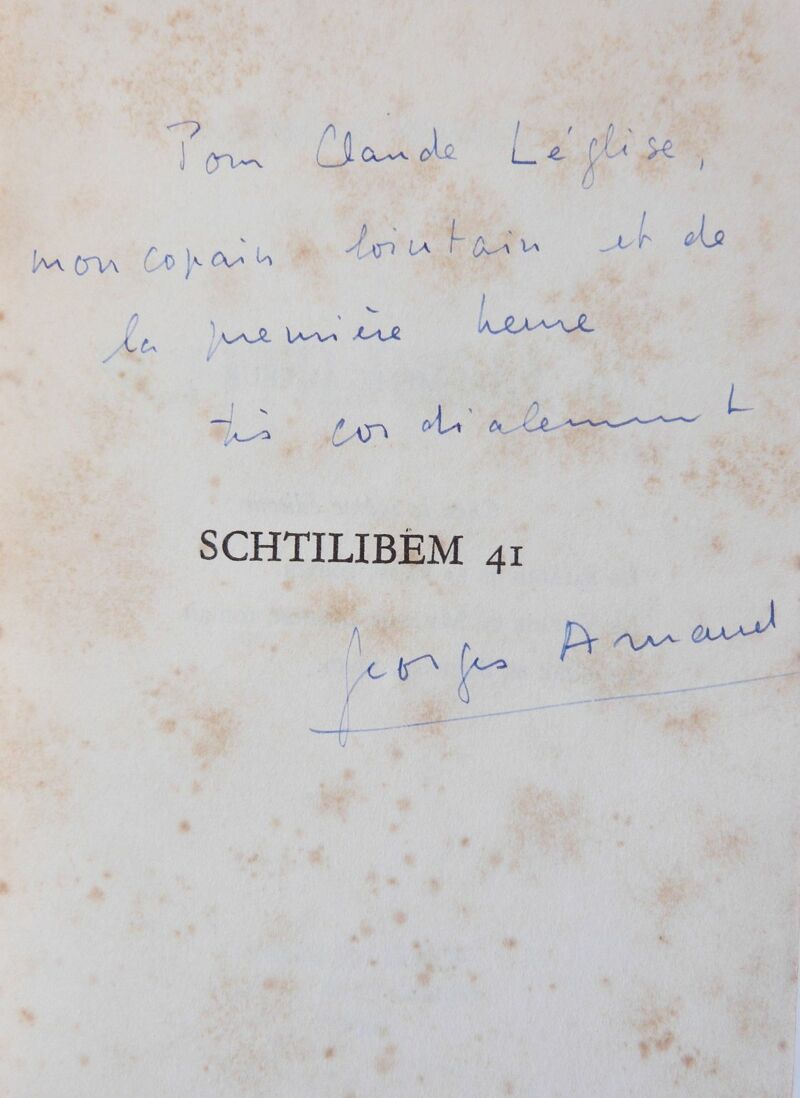 Pour Claude Léglise,
mon copain lointain et de
la première heure
très cordialement
SCHTILIBÈM 41
Georges Arnaud